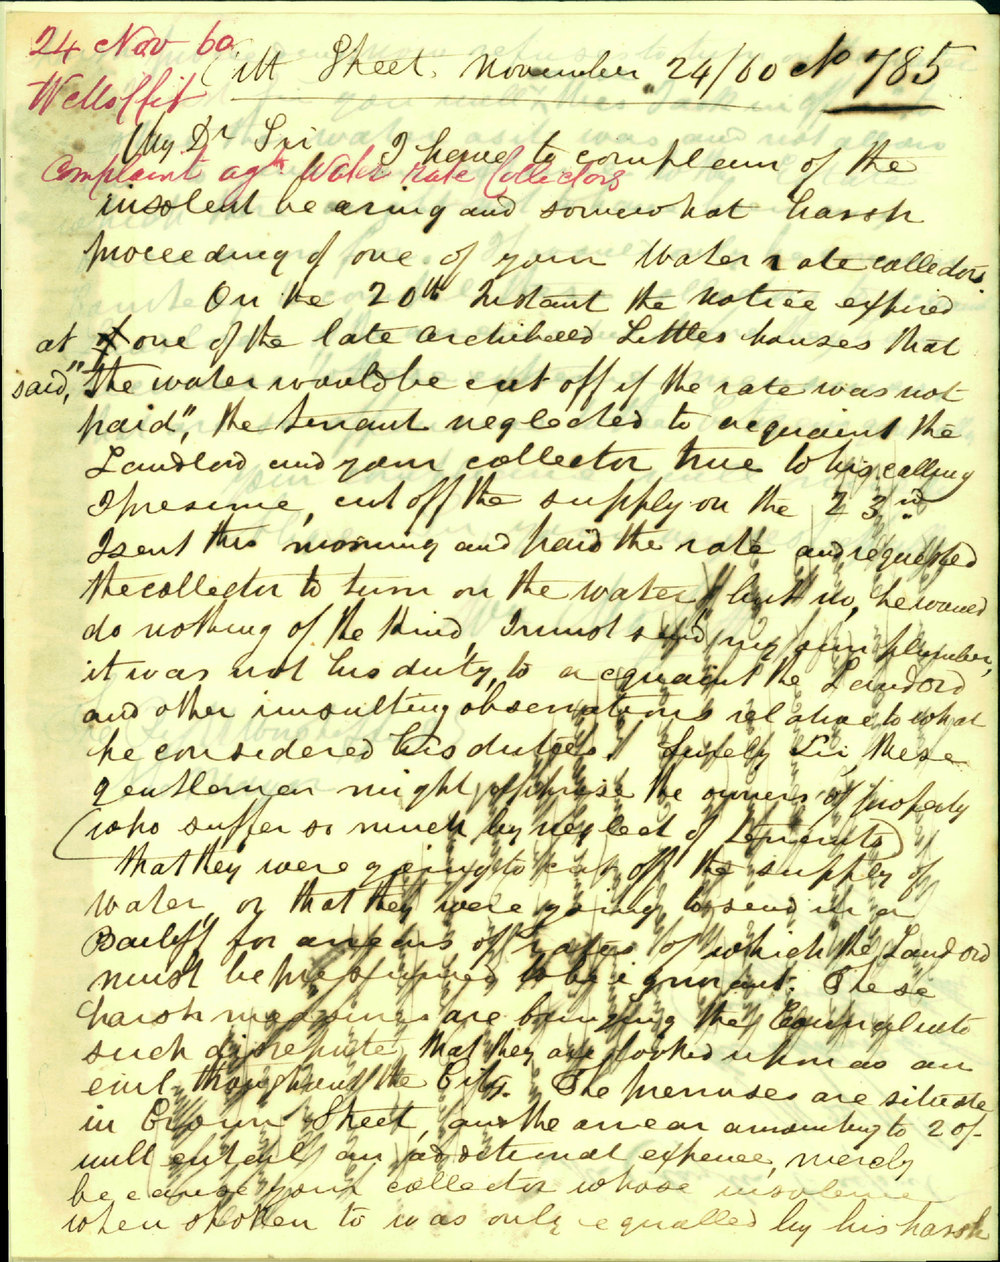 24 Nov 60
W Moffit
Pitt Street. November 24/60 No 785
My Dr Sir I have to complain of the
Complaint agst Water Rate Collectors
insolent bearing and somewhat harsh
proceeding of one of your Water rate collectors.
On the 20th Instant the notice expired
at one of the late Archibald Littles houses that
said, "the water would be cut off if the rate was not
paid", the tenant neglected to acquaint the
Landlord and your collector true to his calling
I presume, cut off the supply on the 23rd
I sent this morning and paid the rate and requested
the collector to turn on the water, but no, he would
do nothing of the kind, I must send my own plumber,
it was not his duty, to acquaint the Landlord
and other insulting observations relative to what
he considered his duties! Surely Sir, these
gentlemen might apprise the owners of property
(who suffer so much by neglect of tenants)
that they were going to cut off the supply of
water, or that they were going to send in a
Bailiff, for arrears of rates of which the Landlord
must be presumed to be ignorant. These
harsh measures are bringing the Council into
such disrepute, that they are looked upon as an
evil throughout the City. The premises are situate
in Crown Street, and the arrear amounting to 20/-
will entail an additional expence, merely
because your collector whose insolence
when spoken to was only equalled by his harsh